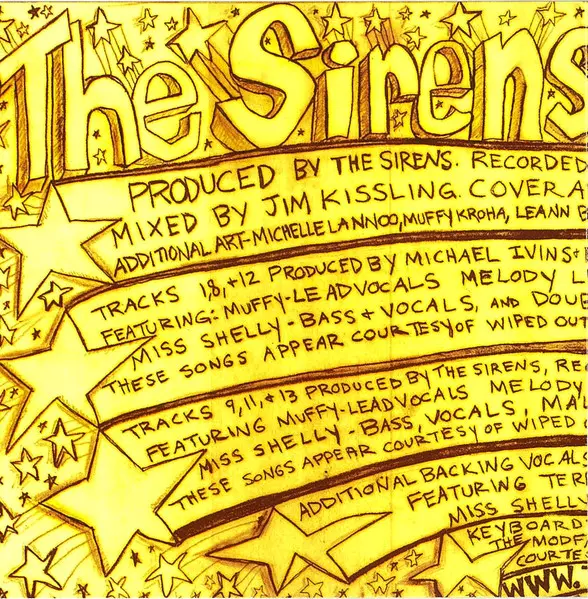 The Sirens
PRODUCED BY THE SIRENS. RECORDED
MIXED BY JIM KISSLING. COVER A
ADDITIONAL ART-MICHELLE LANNOO, MUFFY KROHA, LEANN B
TRACKS 1,8,+12 PRODUCED BY MICHAEL IVINS+
FEATURING: MUFFY-LEAD VOCALS MELODY L
MISS SHELLY-BASS + VOCALS, AND DOU
THESE SONGS APPEAR COURTESY OF WIPED OUT
TRACKS 9,11,+13 PRODUCED BY THE SIRENS, RE
FEATURING MUFFY-LEAD VOCALS MELODY
MISS SHELLY-BASS, VOCALS, MAL
THESE SONGS APPEAR COURTESY OF WIPED
ADDITIONAL BACKING VOCALS
FEATURING TER
MISS SHELLY
KEYBOARD
THE MODE
COURTE
WWW.